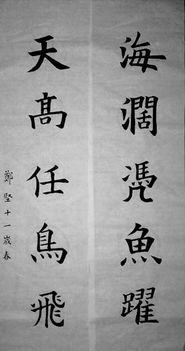 海闊凴魚躍
天高任鳥飛
鄭堅十一歲春